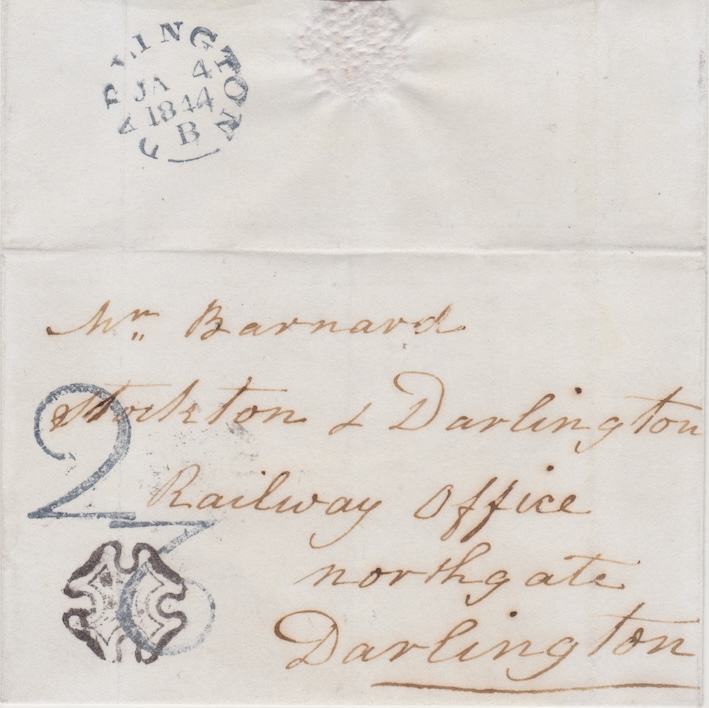 DARLINGTON
JA 4
1844
B
Mr. Barnard
Stockton & Darlington
Railway Office
northgate
Darlington
2